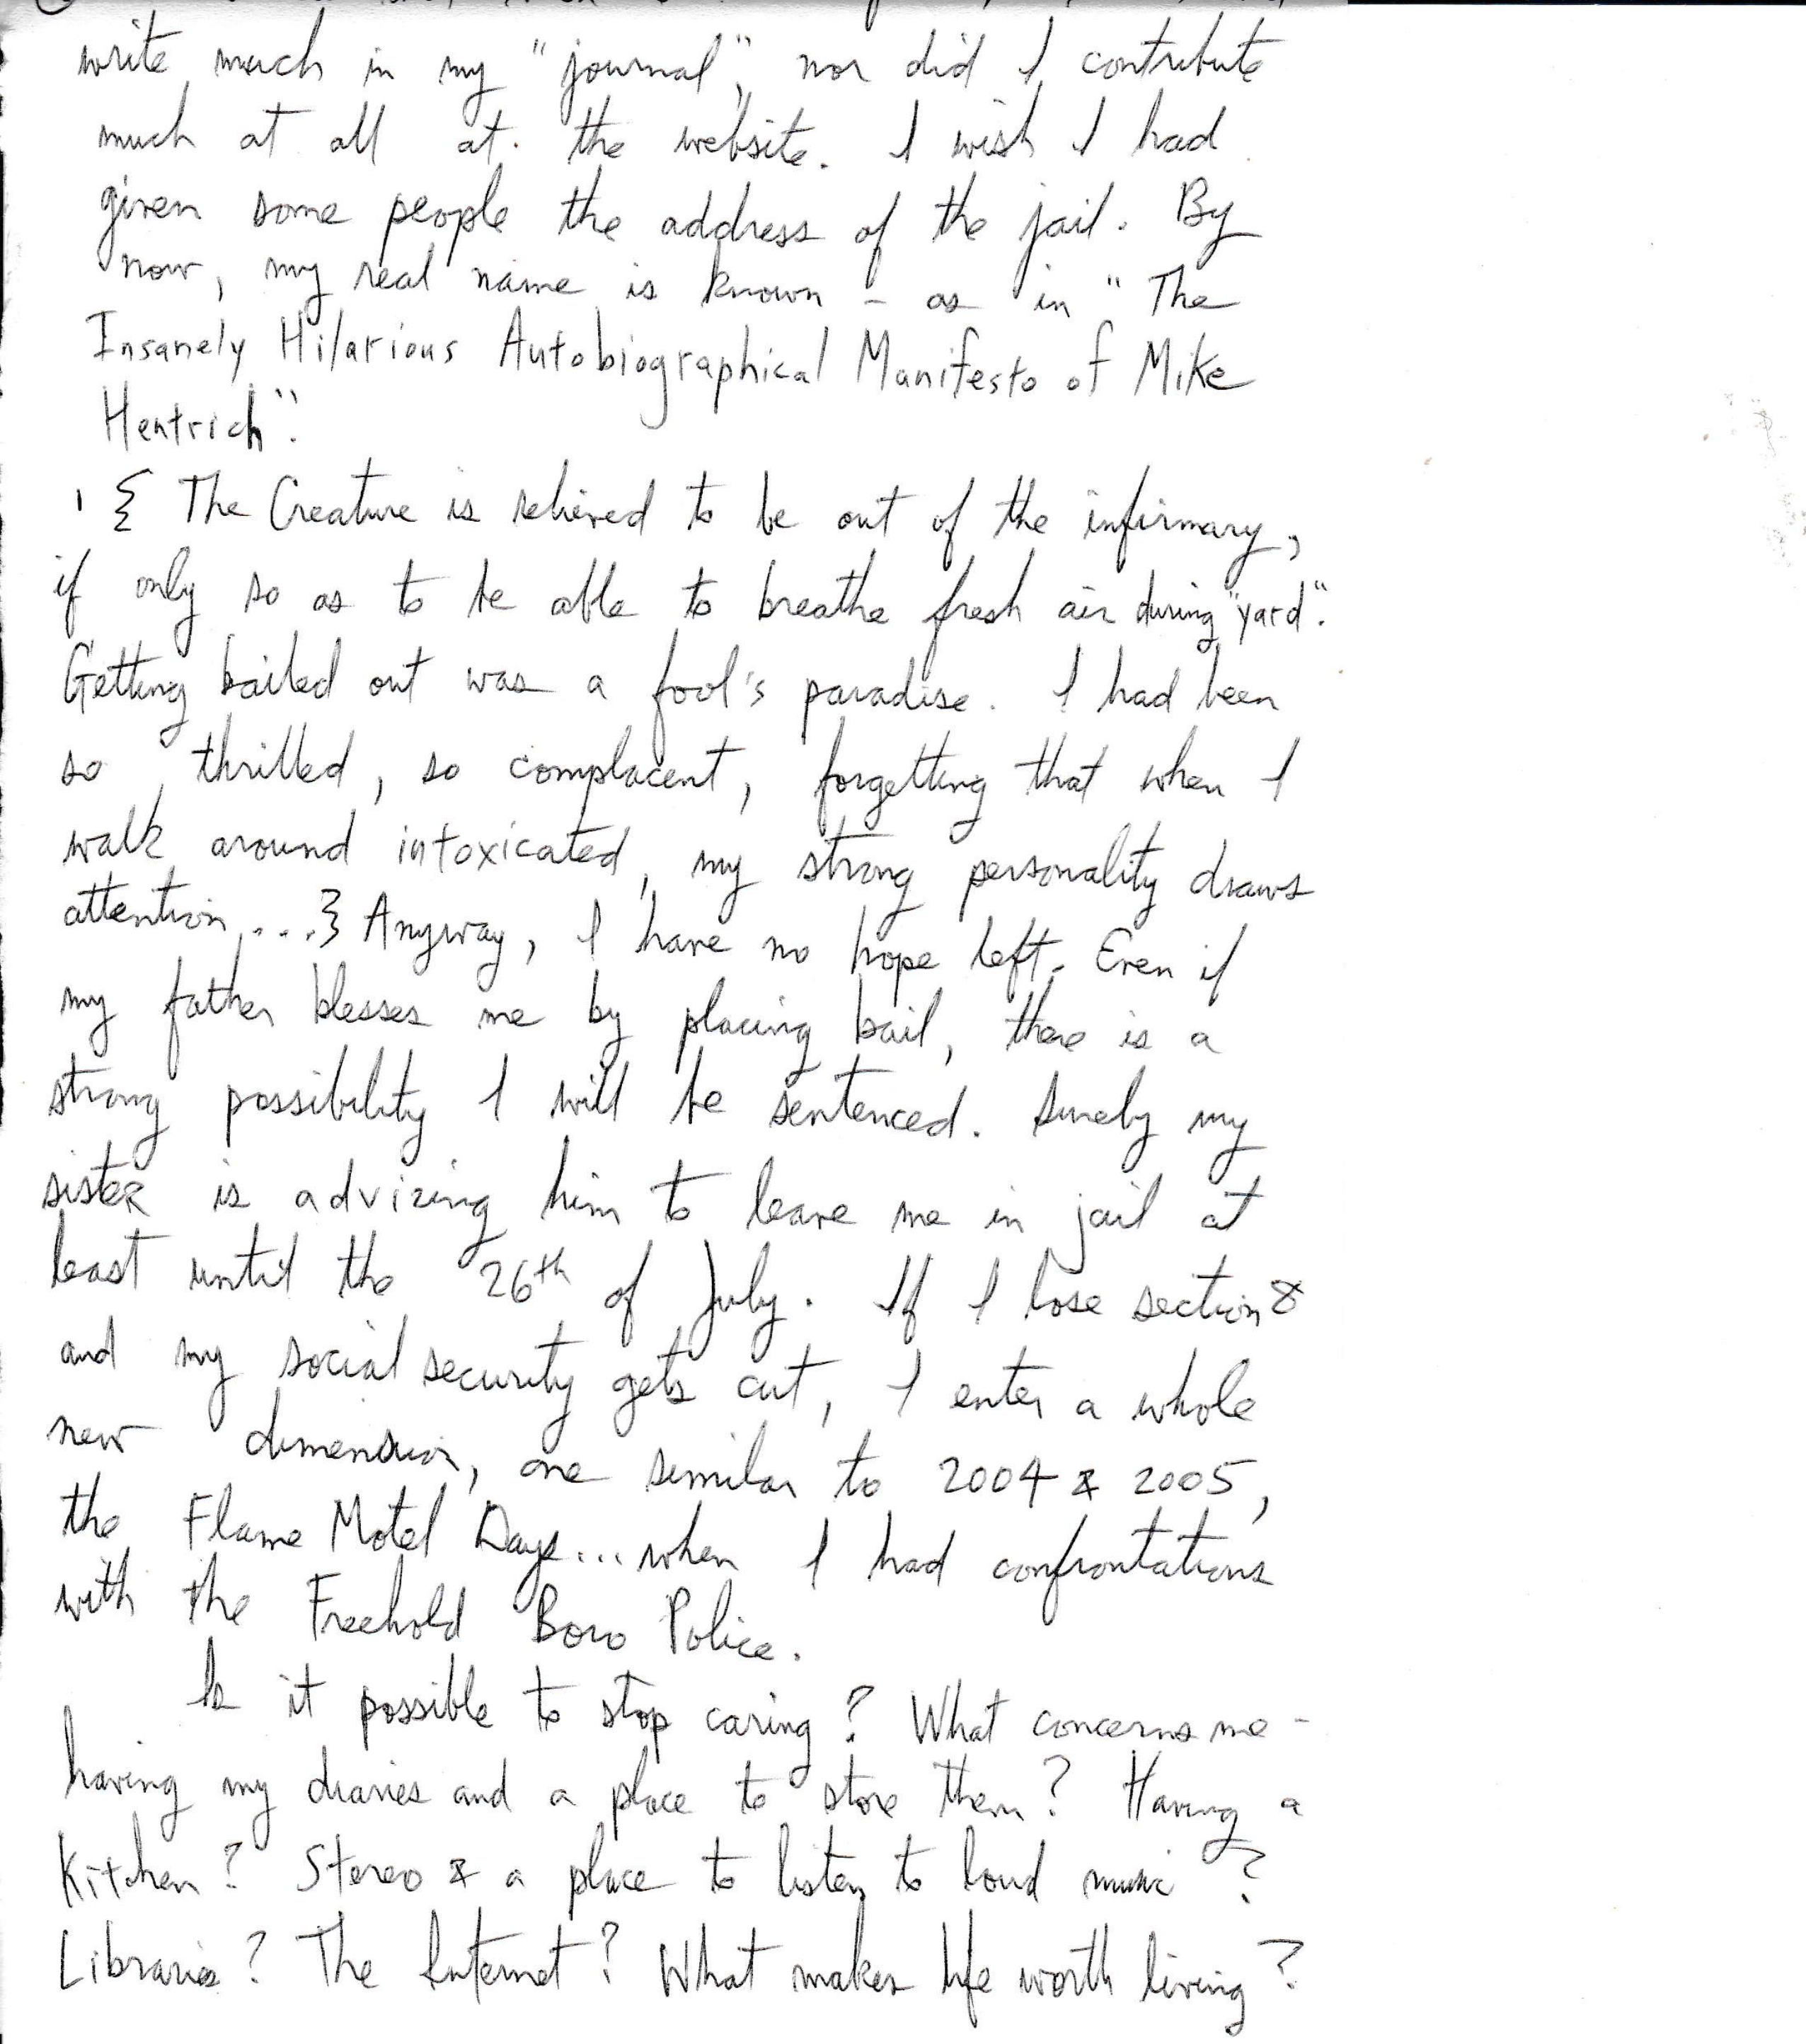 write much in my "journal", nor did I contribute
much at all at the website. I wish I had
given some people the address of the jail. By
now, my real name is known - as in "The
Insanely Hilarious Autobiographical Manifesto of Mike
Hentrich".
{ The Creature is relieved to be out of the infirmary,
if only so as to be able to breathe fresh air during "yard".
Getting bailed out was a fool's paradise. I had been
so thrilled, so complacent, forgetting that when I
walk around intoxicated, my strong personality draws
attention....} Anyway, I have no hope left. Even if
my father blesses me by placing bail, there is a
strong possibility I will be sentenced. Surely my
sister is advizing him to leave me in jail at
least until the 26th of July. If I lose section 8
and my social security gets cut, I enter a whole
new dimension, one similar to 2004 & 2005,
the Flame Motel Days... when I had confrontations
with the Freehold Boro Police.
Is it possible to stop caring? What concerns me -
having my diaries and a place to store them? Having a
Kitchen? Stereo & a place to listen to loud music?
Libraries? The Internet? What makes life worth living?